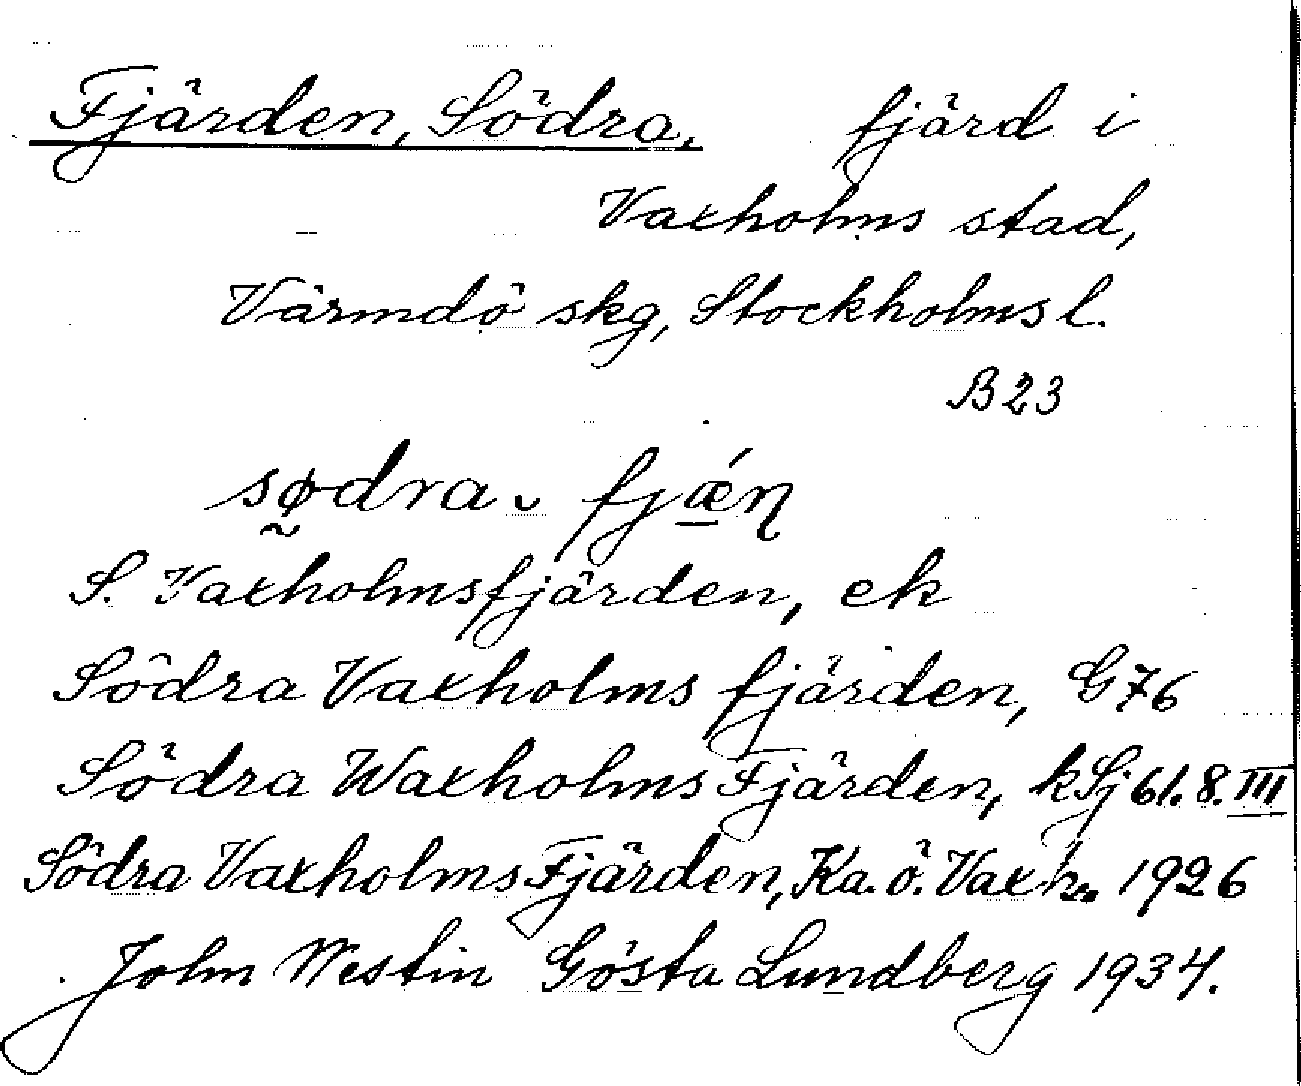 Fjärden, Södra. fjärd i
Vaxholms stad,
Värmdö skg, Stockholms l.
B23
sø̰dra ˬ fjǽ̠ɳ
S. Vaxholmsfjärden, ek
Södra Vaxholms fjärden, G76
Södra Waxholms Fjärden, kSj 61.8.III
Södra Vaxholms Fjärden, Ka. ö. Vaxh. 1926
John Westin Gösta Lundberg 1934.